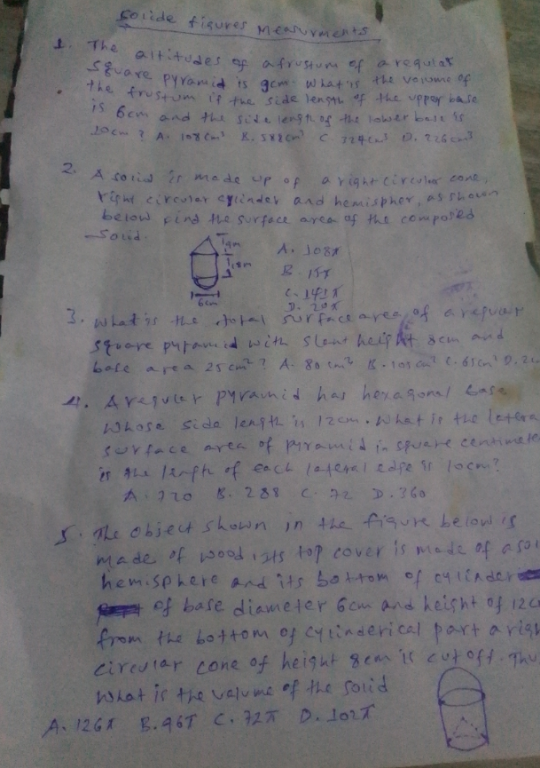 Soside figures Measurments
1. The altitudes of a frustum of a regular
square pyramid is 9cm. What is the volume of
the frustum if the side length of the upper base
is 6cm and the side length of the lower base is
10cm ? A. cm³ B. 588cm³ C. D.
2. A solid is made up of a right circular cone,
right circular cylinder and hemispher, as shown
below find the surface area of the composed
solid.
A. 108π
B. 15π
C. 143π
D. 20π
6cm
3. What is the total surface area of a regular
square pyramid with slant height 8cm and
base area 25cm² ? A. 80cm² B. 105cm² C. 65cm² D.
4. A regular pyramid has hexagonal base
whose side length is 12cm. What is the latera
surface area of pyramid in square centimete
is the length of each lateral edge is 10cm?
A. B. 288 C. 72 D. 360
5. The object shown in the figure below is
made of wood, its top cover is made of a so
hemisphere and its bottom of cylinder
of base diameter 6cm and height of 12c
from the bottom of cylinderical part a righ
circular cone of height 8cm is cut off. Thu
What is the valume of the solid
A. 126π B. 96π C. 72π D. 102π